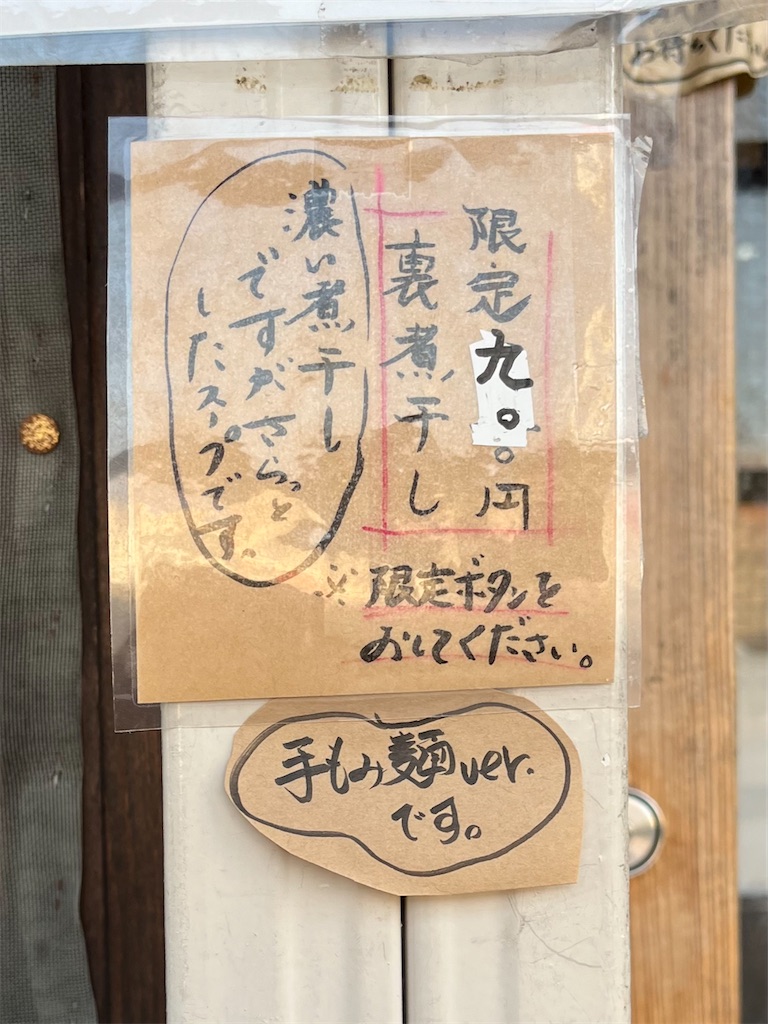 裏煮干し
限定九〇〇円
濃い煮干し
ですがさらっと
したスープです。
※限定ボタンを
おしてください。
手もみ麺ver.
です。
お待ちください